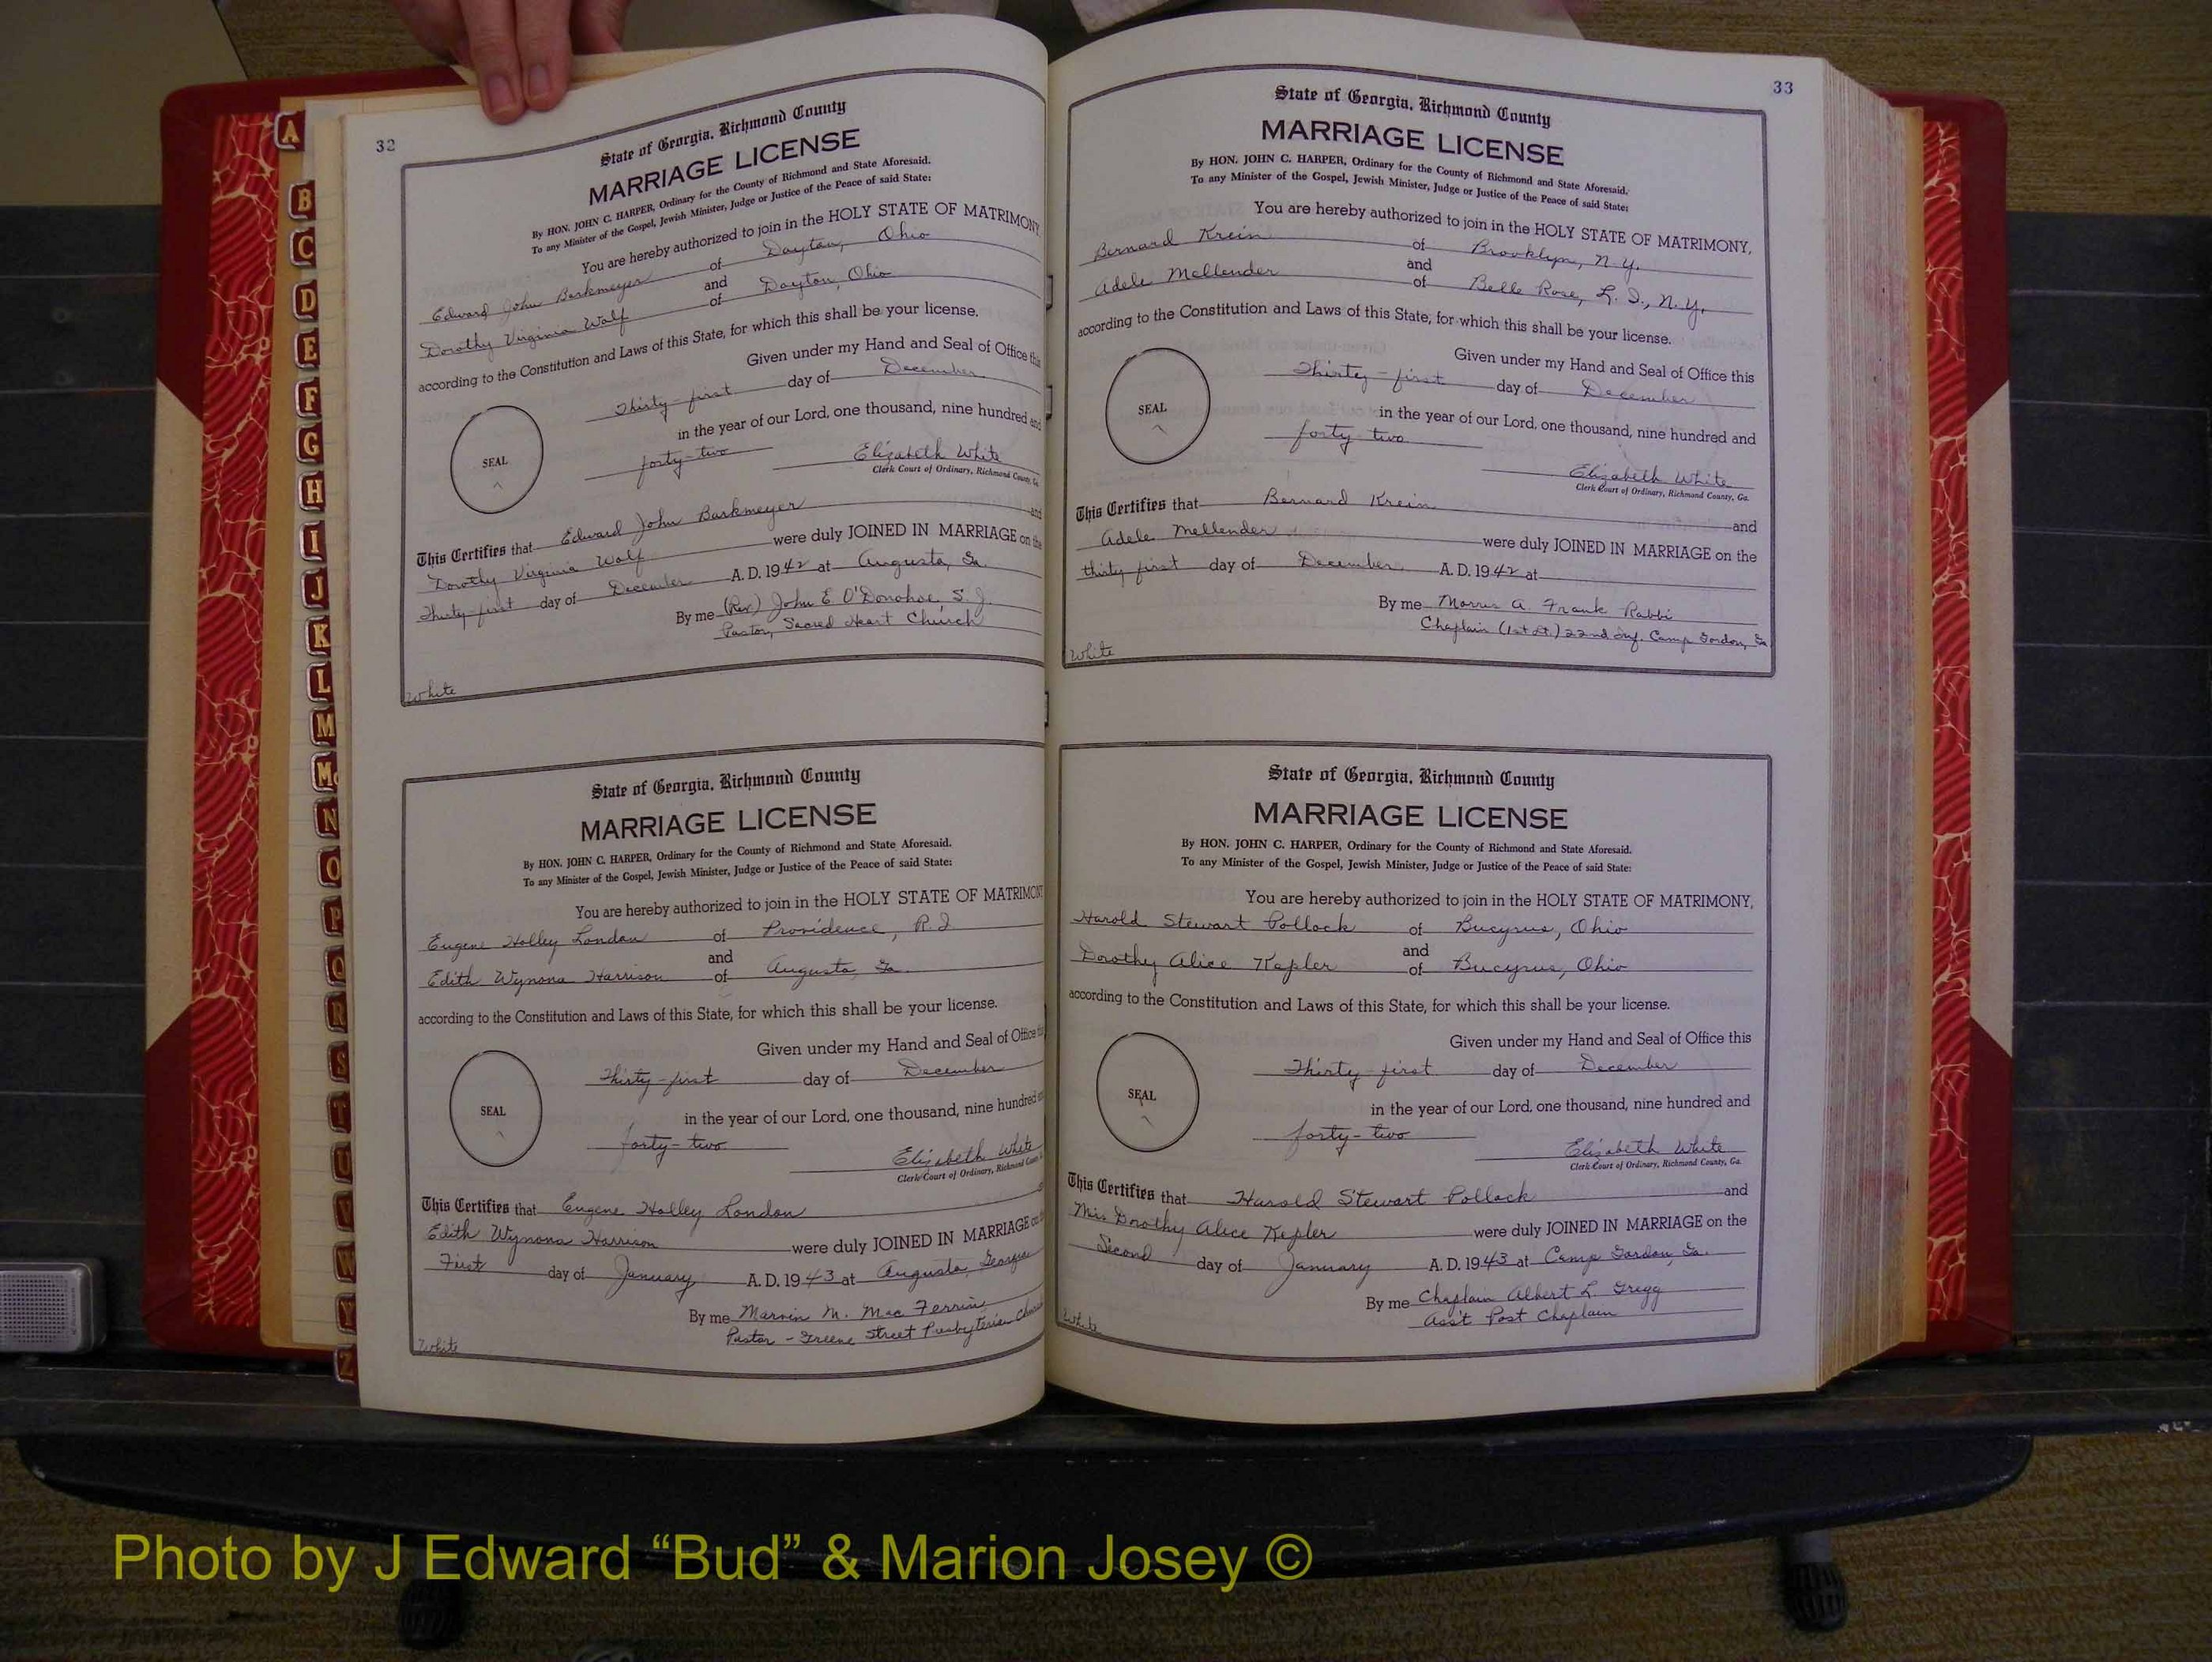 32
State of Georgia, Richmond County
MARRIAGE LICENSE
By HON. JOHN C. HARPER, Ordinary for the County of Richmond and State Aforesaid.
To any Minister of the Gospel, Jewish Minister, Judge or Justice of the Peace of said State:
You are hereby authorized to join in the HOLY STATE OF MATRIMONY,
Edward John Barkmeyer of Dayton, Ohio
and
Dorothy Virginia Wolf of Dayton, Ohio
according to the Constitution and Laws of this State, for which this shall be your license.
Given under my Hand and Seal of Office this
Thirty-first day of December
in the year of our Lord, one thousand, nine hundred and
forty-two
SEAL
Elizabeth White
Clerk Court of Ordinary, Richmond County, Ga.
This Certifies that Edward John Barkmeyer and
Dorothy Virginia Wolf were duly JOINED IN MARRIAGE on the
Thirty-first day of December A. D. 1942 at Augusta, Ga.
By me (Rev.) John E. O'Donohoe, S. J.
Pastor, Sacred Heart Church
White
State of Georgia, Richmond County
MARRIAGE LICENSE
By HON. JOHN C. HARPER, Ordinary for the County of Richmond and State Aforesaid.
To any Minister of the Gospel, Jewish Minister, Judge or Justice of the Peace of said State:
You are hereby authorized to join in the HOLY STATE OF MATRIMONY
Eugene Holley London of Providence, R. I.
and
Edith Wynona Harrison of Augusta, Ga.
according to the Constitution and Laws of this State, for which this shall be your license.
Given under my Hand and Seal of Office
Thirty-first day of December
in the year of our Lord, one thousand, nine hundred
forty-two
SEAL
Elizabeth White
Clerk Court of Ordinary, Richmond County
This Certifies that Eugene Holley London
Edith Wynona Harrison were duly JOINED IN MARRIAGE on
First day of January A. D. 1943 at Augusta, Georgia
By me Marvin M. Mac Ferrin
Pastor - Greene Street Presbyterian
White
33
State of Georgia, Richmond County
MARRIAGE LICENSE
By HON. JOHN C. HARPER, Ordinary for the County of Richmond and State Aforesaid.
To any Minister of the Gospel, Jewish Minister, Judge or Justice of the Peace of said State:
You are hereby authorized to join in the HOLY STATE OF MATRIMONY,
Bernard Krein of Brooklyn, N. Y.
and
Adele Mellender of Belle Rose, L. I., N. Y.
according to the Constitution and Laws of this State, for which this shall be your license.
Given under my Hand and Seal of Office this
Thirty-first day of December
in the year of our Lord, one thousand, nine hundred and
forty two
SEAL
Elizabeth White
Clerk Court of Ordinary, Richmond County, Ga.
This Certifies that Bernard Krein and
Adele Mellender were duly JOINED IN MARRIAGE on the
thirty first day of December A. D. 1942 at
By me Morris A. Frank Rabbi
Chaplain (1st Lt.) 22nd Inf. Camp Gordon, Ga
White
State of Georgia, Richmond County
MARRIAGE LICENSE
By HON. JOHN C. HARPER, Ordinary for the County of Richmond and State Aforesaid.
To any Minister of the Gospel, Jewish Minister, Judge or Justice of the Peace of said State:
You are hereby authorized to join in the HOLY STATE OF MATRIMONY,
Harold Stewart Pollock of Bucyrus, Ohio
and
Dorothy Alice Kepler of Bucyrus, Ohio
according to the Constitution and Laws of this State, for which this shall be your license.
Given under my Hand and Seal of Office this
Thirty first day of December
in the year of our Lord, one thousand, nine hundred and
forty-two
SEAL
Elizabeth White
Clerk Court of Ordinary, Richmond County, Ga.
This Certifies that Harold Stewart Pollock and
Miss Dorothy Alice Kepler were duly JOINED IN MARRIAGE on the
Second day of January A. D. 1943 at Camp Gordon, Ga.
By me Chaplain Albert L. Gregg
Ass't Post Chaplain
White
A
B
C
D
E
F
G
H
I
J
K
L
M
Mc
N
O
P
Q
R
S
T
U
V
W
Y
Z
Photo by J Edward “Bud” & Marion Josey ©